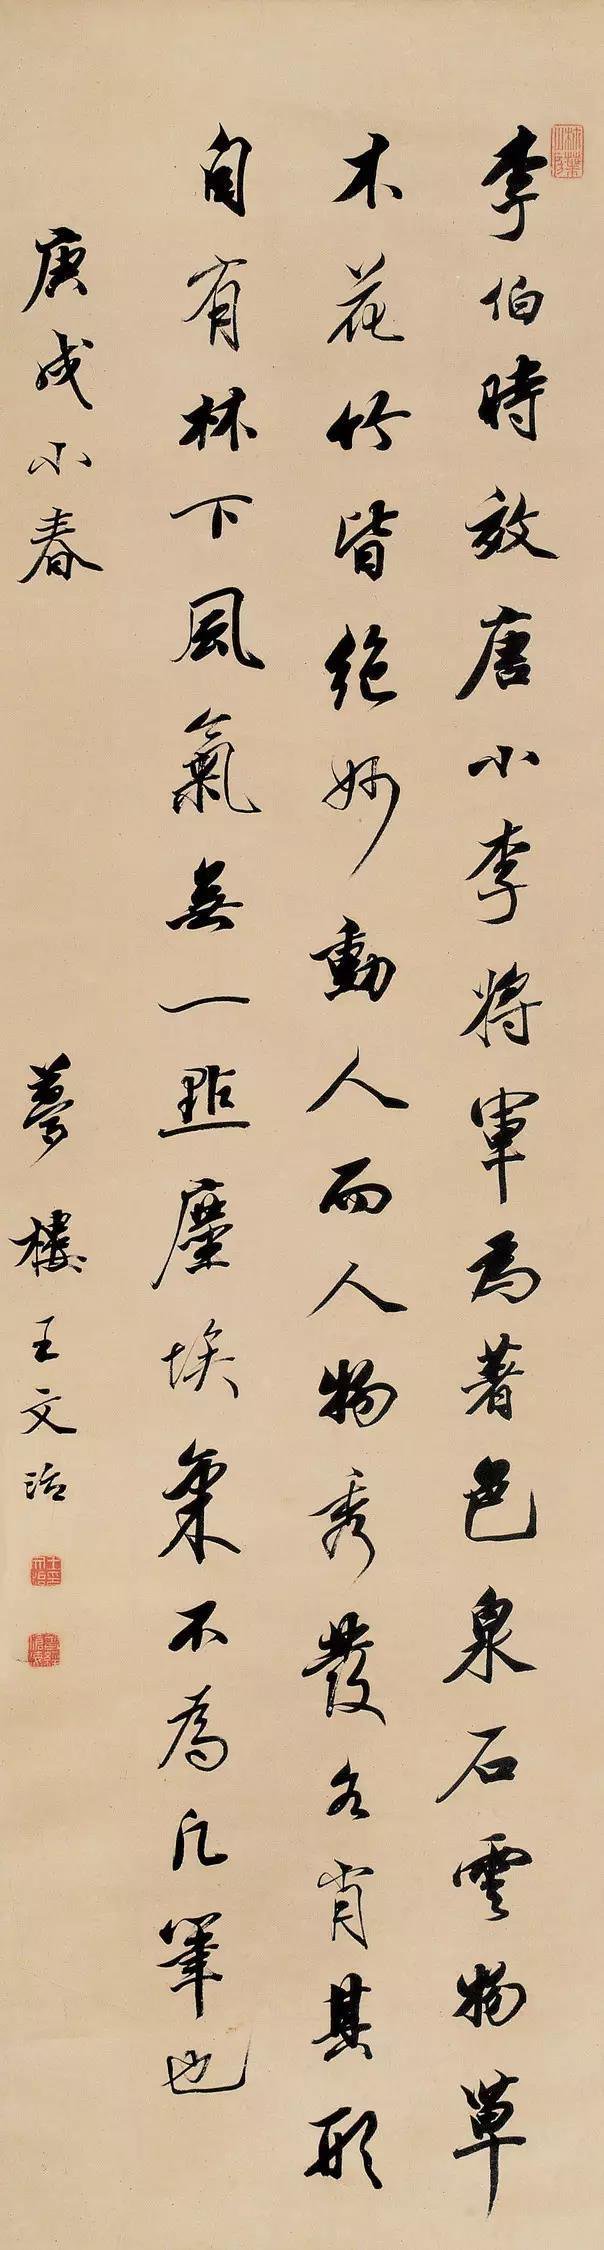 李伯時效唐小李將軍為著色泉石雲物草
木花竹皆絶妙動人而人物秀發各肖其形
自有林下風氣無一點塵埃氣不為凡筆也
庚戌小春
夢樓王文治
王文治